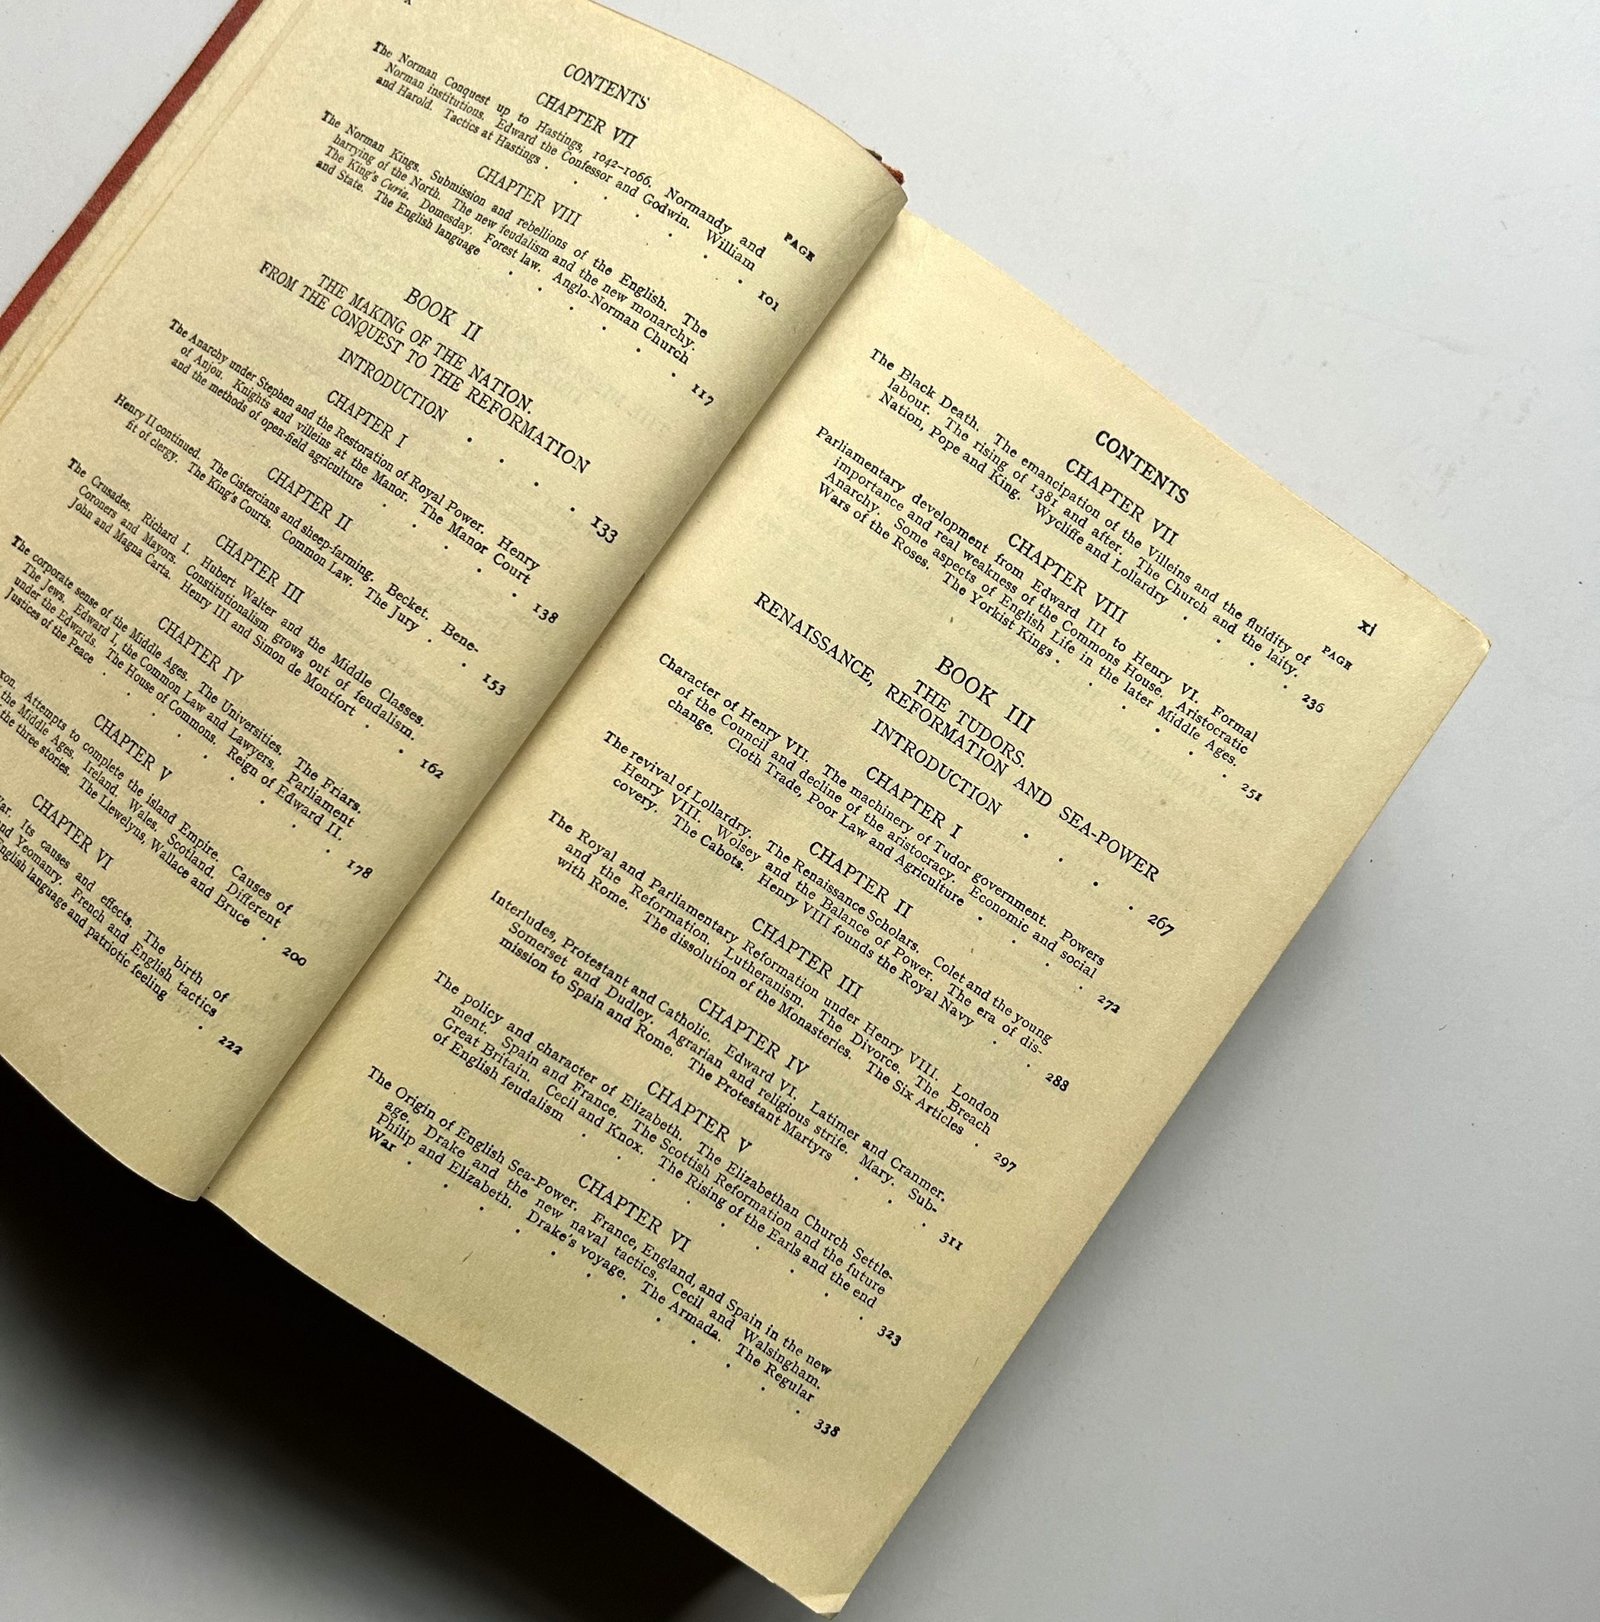 x
CONTENTS
CHAPTER VII
PAGE
The Norman Conquest up to Hastings, 1042–1066. Normandy and
Norman institutions. Edward the Confessor and Godwin. William
and Harold. Tactics at Hastings . . . . . . 101
CHAPTER VIII
The Norman Kings. Submission and rebellions of the English. The
harrying of the North. The new feudalism and the new monarchy.
The King's Curia. Domesday. Forest law. Anglo-Norman Church
and State. The English language . . . . . . 117
BOOK II
THE MAKING OF THE NATION.
FROM THE CONQUEST TO THE REFORMATION
INTRODUCTION . . . . . 133
CHAPTER I
The Anarchy under Stephen and the Restoration of Royal Power. Henry
of Anjou. Knights and villeins at the Manor. The Manor Court
and the methods of open-field agriculture . . . . . 138
CHAPTER II
Henry II continued. The Cistercians and sheep-farming. Becket. Bene-
fit of clergy. The King's Courts. Common Law. The Jury . . . 153
CHAPTER III
The Crusades. Richard I. Hubert Walter and the Middle Classes.
Coroners and Mayors. Constitutionalism grows out of feudalism.
John and Magna Carta. Henry III and Simon de Montfort . . . 162
CHAPTER IV
The corporate sense of the Middle Ages. The Universities. The Friars.
The Jews. Edward I, the Common Law and Lawyers. Parliament
under the Edwards. The House of Commons. Reign of Edward II.
Justices of the Peace . . . . . . . 178
CHAPTER V
Attempts to complete the island Empire. Causes of
the Middle Ages. Ireland. Wales. Scotland. Different
the three stories. The Llewelyns, Wallace and Bruce . 200
CHAPTER VI
War. Its causes and effects. The birth of
and Yeomanry. French and English tactics
English language and patriotic feeling . 222
CONTENTS
xi
CHAPTER VII
PAGE
The Black Death. The emancipation of the Villeins and the fluidity of
labour. The rising of 1381 and after. The Church and the laity.
Nation, Pope and King. Wycliffe and Lollardry . . . . 236
CHAPTER VIII
Parliamentary development from Edward III to Henry VI. Formal
importance and real weakness of the Commons House. Aristocratic
Anarchy. Some aspects of English Life in the later Middle Ages.
Wars of the Roses. The Yorkist Kings . . . . . 251
BOOK III
THE TUDORS.
RENAISSANCE, REFORMATION AND SEA-POWER
INTRODUCTION . . . . . 267
CHAPTER I
Character of Henry VII. The machinery of Tudor government. Powers
of the Council and decline of the aristocracy. Economic and social
change. Cloth Trade, Poor Law and Agriculture . . . . 272
CHAPTER II
The revival of Lollardry. The Renaissance Scholars. Colet and the young
Henry VIII. Wolsey and the Balance of Power. The era of dis-
covery. The Cabots. Henry VIII founds the Royal Navy . . . 288
CHAPTER III
The Royal and Parliamentary Reformation under Henry VIII. London
and the Reformation. Lutheranism. The Divorce. The Breach
with Rome. The dissolution of the Monasteries. The Six Articles . 297
CHAPTER IV
Interludes, Protestant and Catholic. Edward VI. Latimer and Cranmer.
Somerset and Dudley. Agrarian and religious strife. Mary. Sub-
mission to Spain and Rome. The Protestant Martyrs . . . 311
CHAPTER V
The policy and character of Elizabeth. The Elizabethan Church Settle-
ment. Spain and France. The Scottish Reformation and the future
Great Britain. Cecil and Knox. The Rising of the Earls and the end
of English feudalism . . . . . . . . 323
CHAPTER VI
The Origin of English Sea-Power. France, England, and Spain in the new
age. Drake and the new naval tactics. Cecil and Walsingham.
Philip and Elizabeth. Drake's voyage. The Armada. The Regular
War . . . . . . . . . . . 338